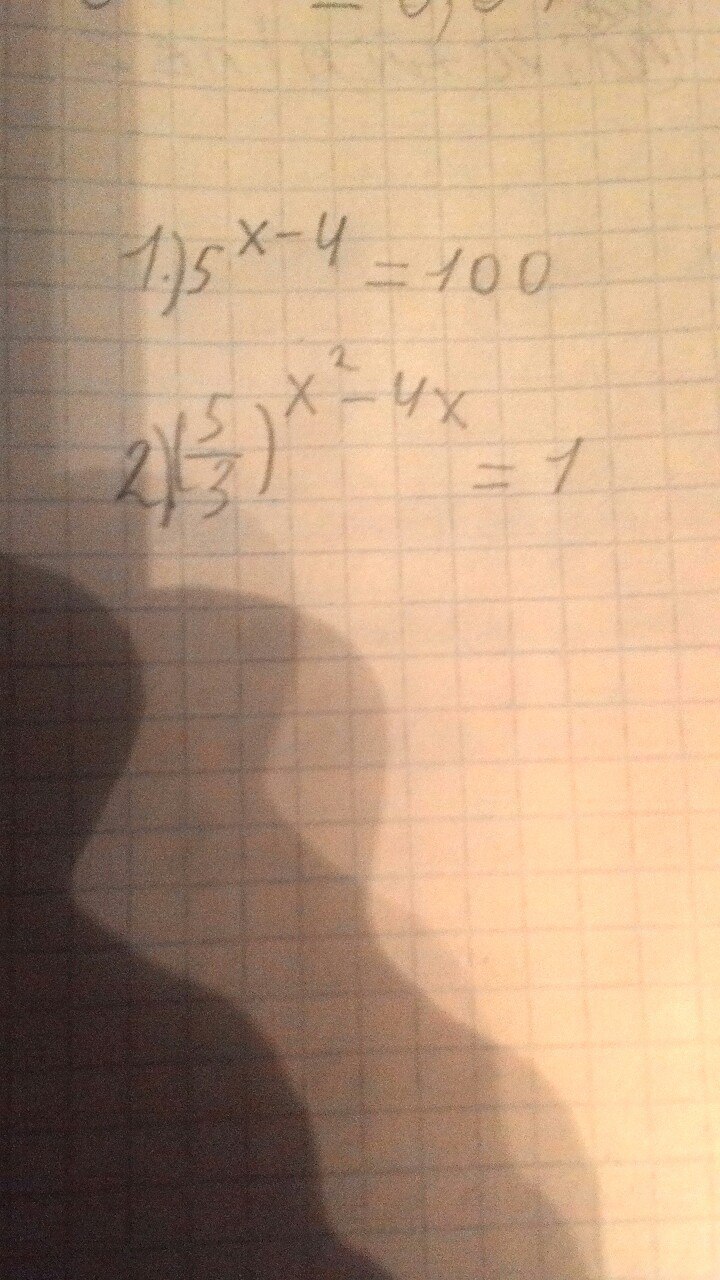 1.) 5^{x-4} = 100
2.) (\frac{5}{3})^{x^2-4x} = 1